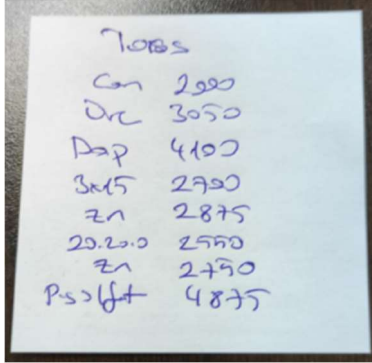 Toros
Can 2000
Üre 3050
Dap 4100
3x15 2700
Zn 2875
20.20.0 2550
Zn 2750
P.sülfat 4875